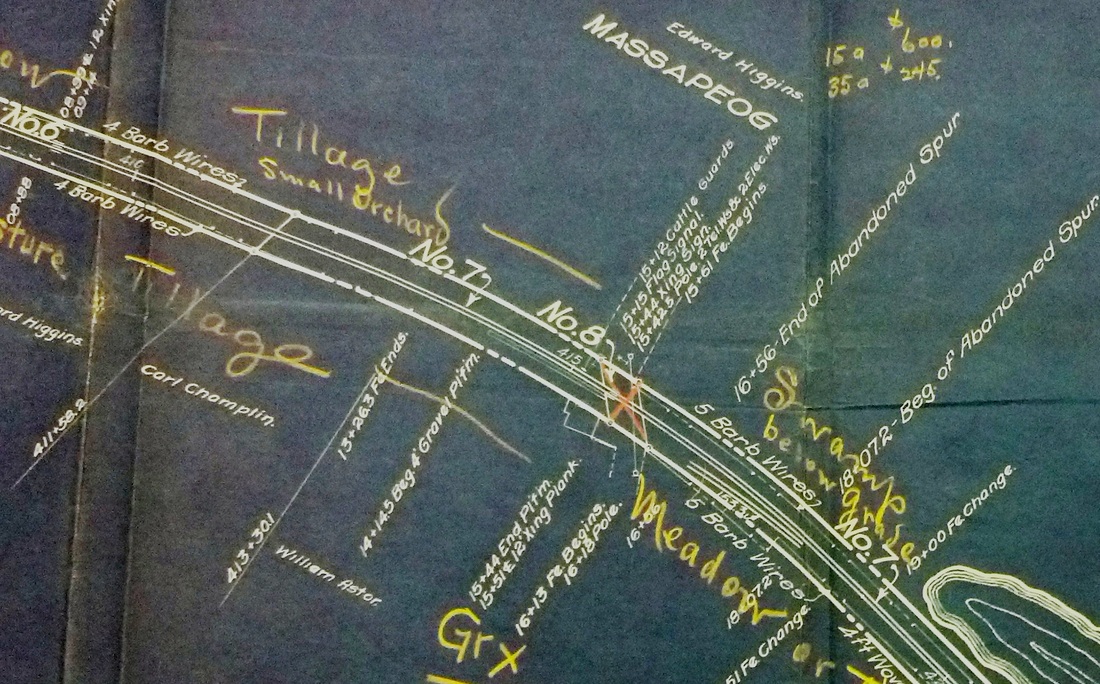 ow
08+99 E 12 Xin
No.6
4 Barb Wires
416
4 Barb Wires
08+88
sture
Tillage
Small Orchard
Edward Higgins
MASSAPEOG
15 a $600.
35 a $245.
No. 7
No. 8
415
15+12 Cattle Guards
15+15 Flag Signal.
15+44 Xing Sign.
15+61 Fe. Begins
16+56-End of Abandoned Spur
18+07.2-Beg. of Abandoned Spur.
Tillage
ord Higgins.
Carl Champlin.
411+58.9
13+26.3 Fe. Ends.
14+14.5 Beg. 4 Gravel Pltm.
413+30.1
William Astor.
5 Barb Wires
5 Barb Wires
Swamp
below
grade
No. 7
5+00 Fe Change.
15+44 End Pltm.
15+51 E 12 Xing Plank.
16+13 Fe. Begins.
16+18 Pole.
Meadow
or
Gr X
51 Fe Change
4 Ft Wov